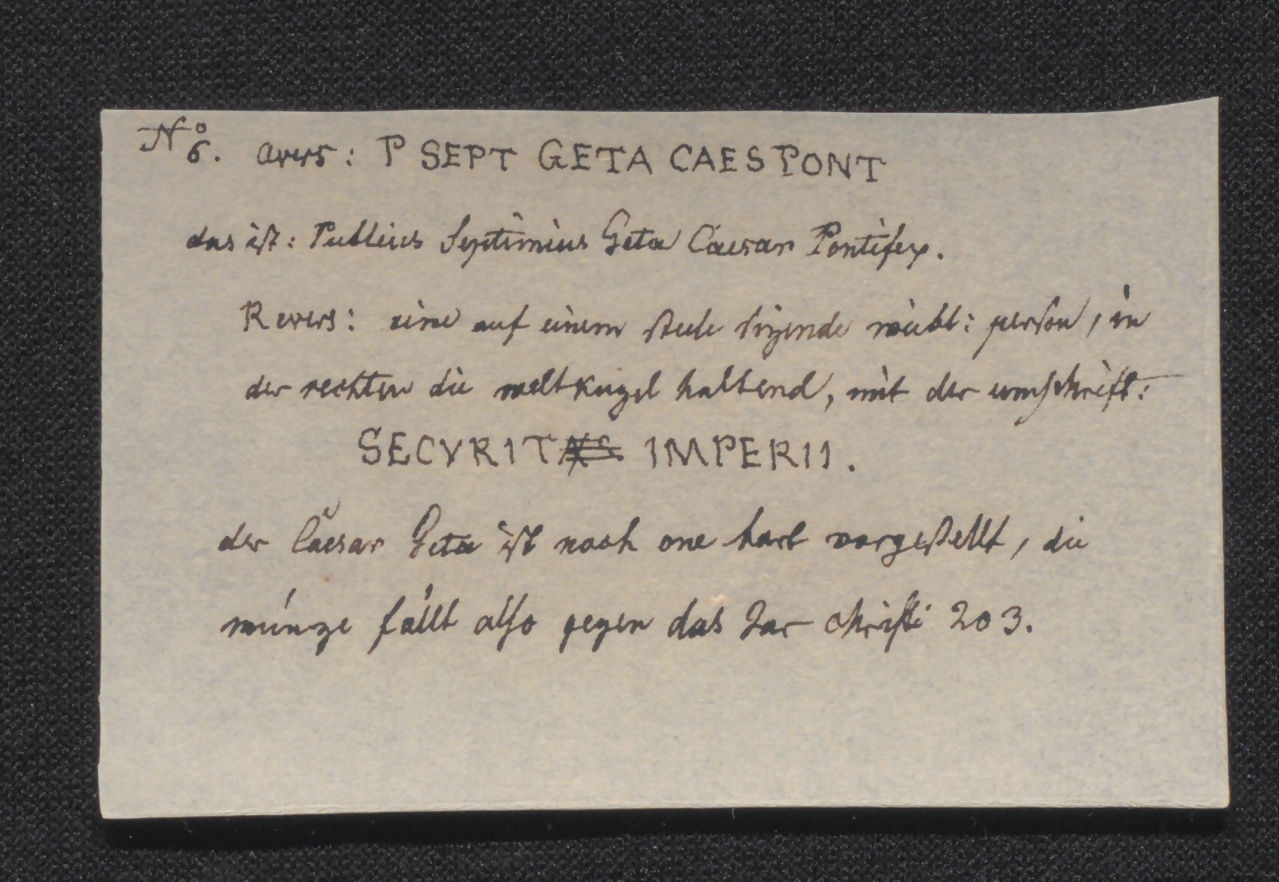 Nº 6. avers: P SEPT GETA CAES PONT
das ist: Publius Septimius Geta Caesar Pontifex.
Revers: eine auf einem stule sizende weibl: person, in
der rechten die weltkugel haltend, mit der umschrift:
SECVRIT IMPERII.
der Caesar Geta ist noch one bart vorgestellt, die
münze fällt also gegen das Jar christi 203.